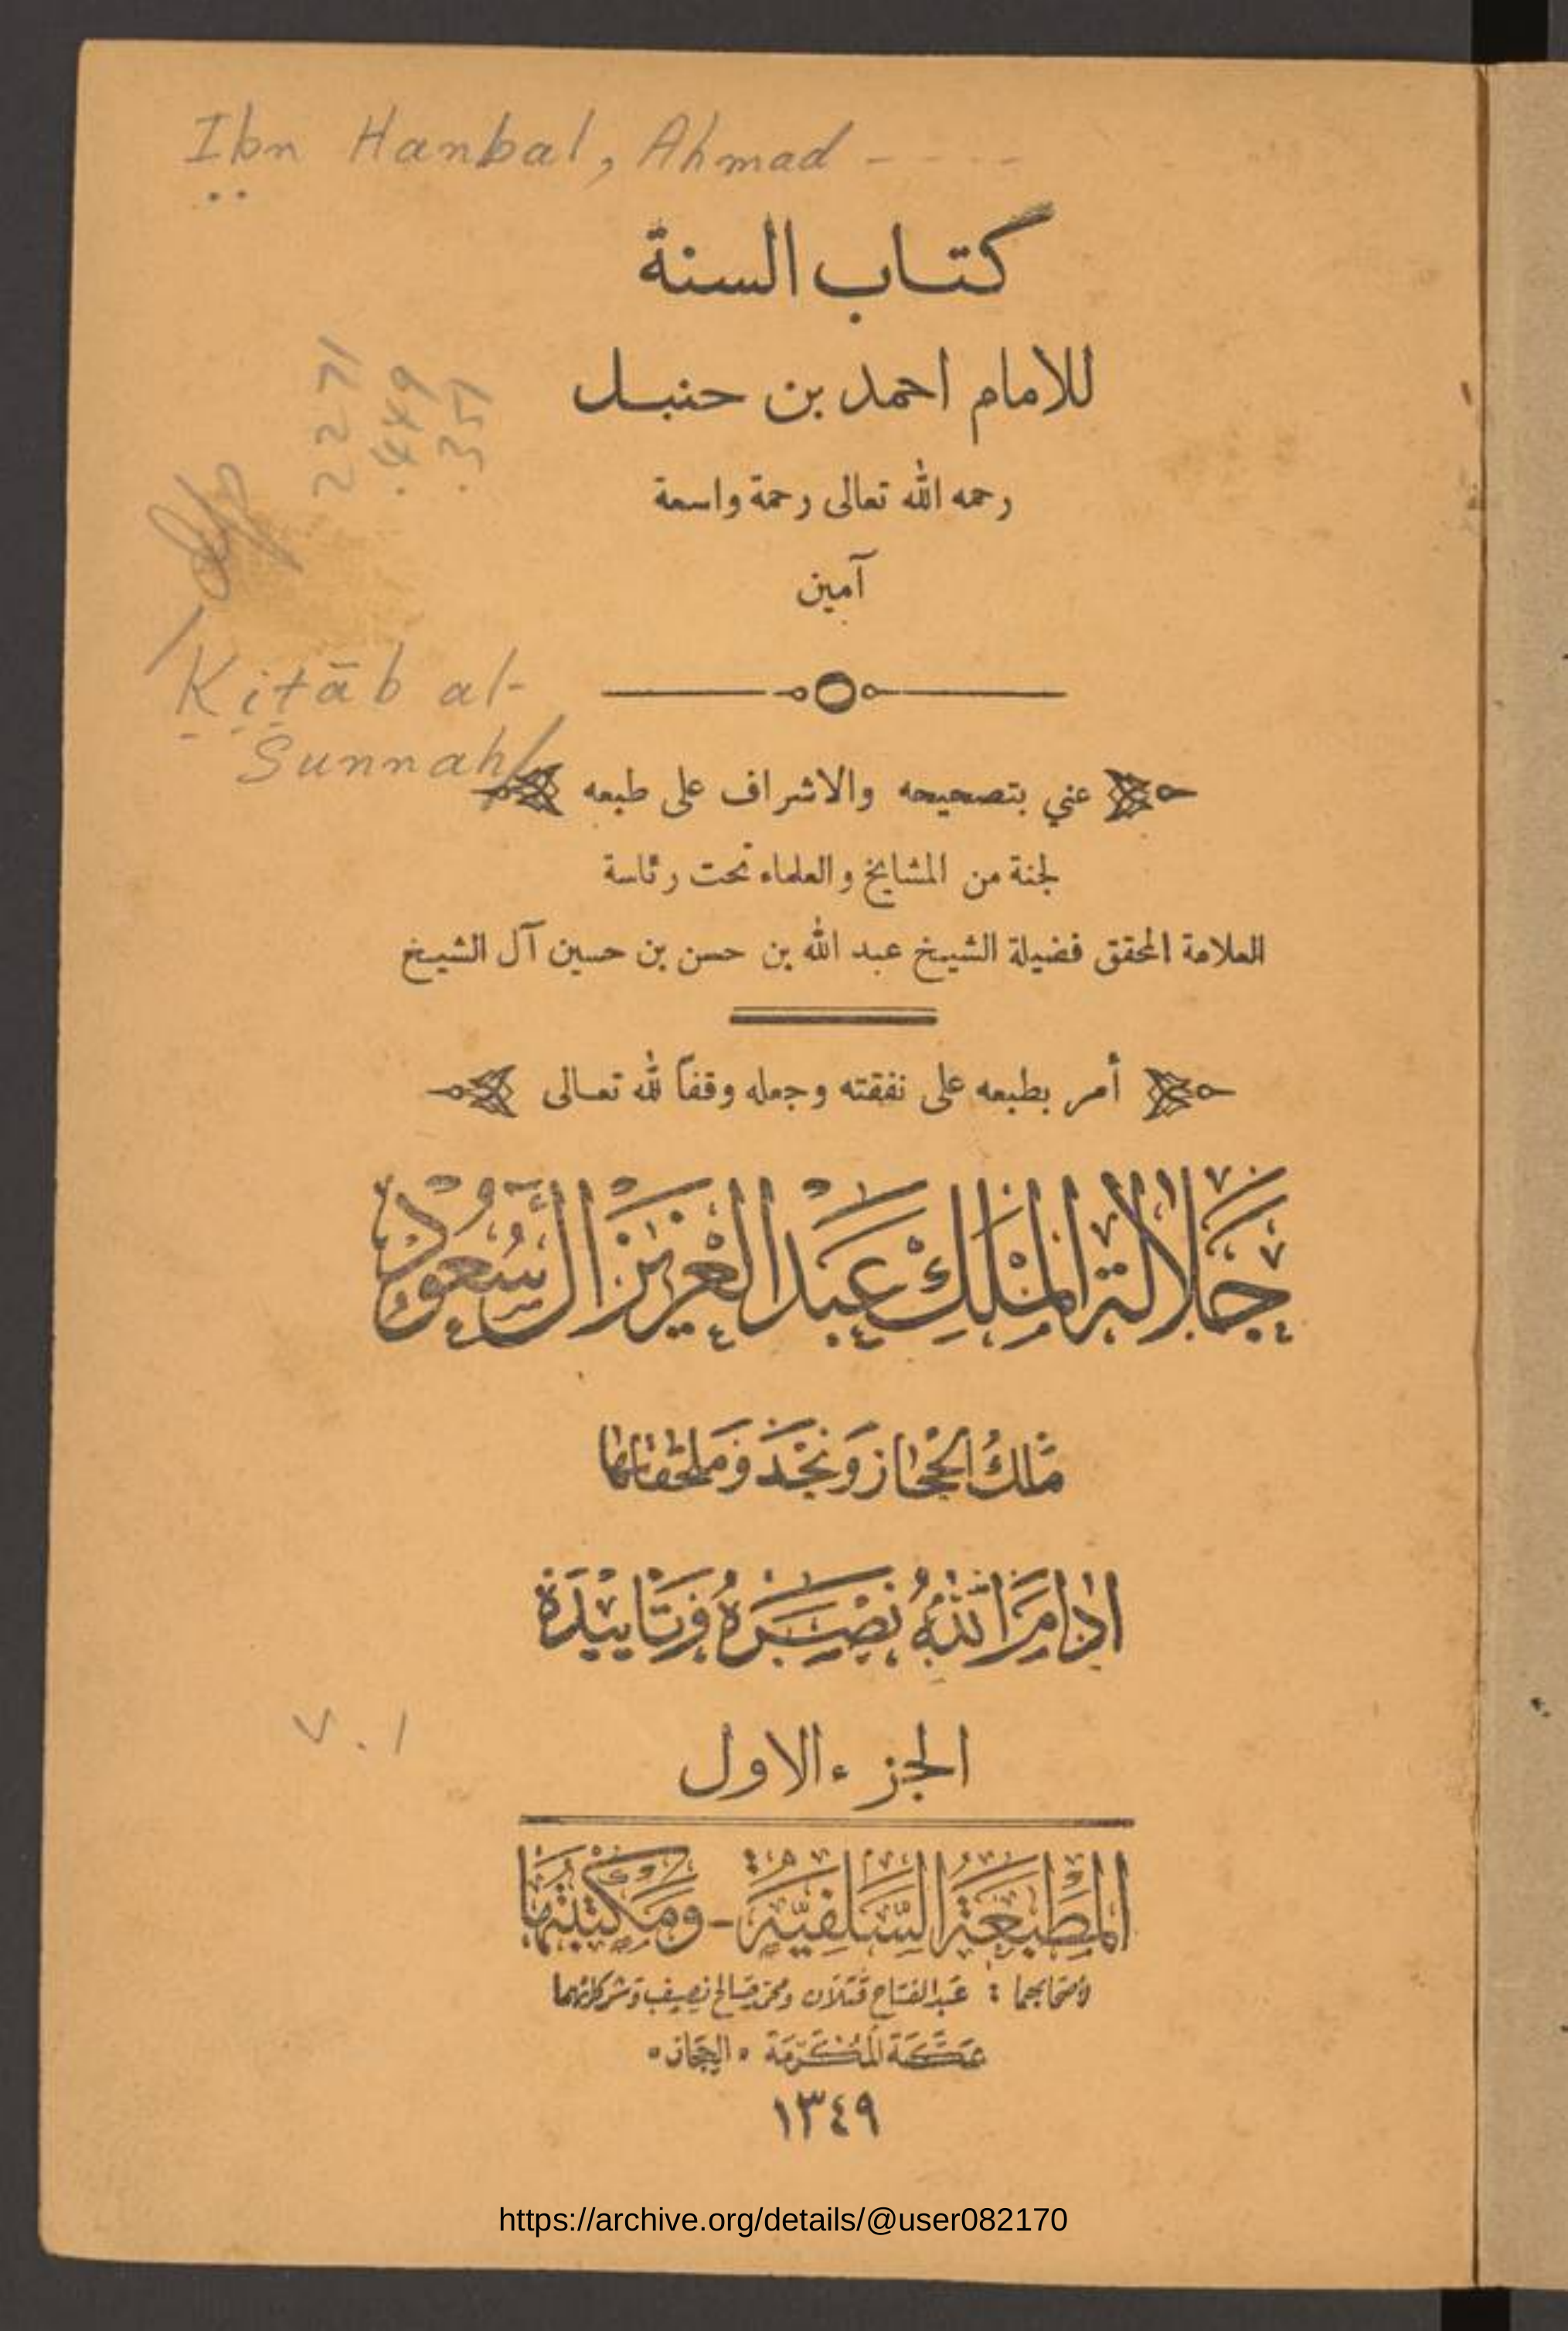 Ibn Hanbal, Ahmad - - - -
كتاب السنة
للامام احمد بن حنبل
رحمه الله تعالى رحمة واسعة
آمين
2271
.449
.351
Kitāb al-
Sunnah
عني بتصحيحه والاشراف على طبعه
لجنة من المشايخ والعلماء تحت رئاسة
العلامة المحقق فضيلة الشيخ عبد الله بن حسن بن حسين آل الشيخ
أمر بطبعه على نفقته وجعله وقفاً لله تعالى
جَلالة المَلِك عَبد العَزيز آل سُعود
مَلك الحجاز وَنجد وَملحقاتها
ادامَ اللهُ نَصرَهُ وَتَاييدَهُ
v. 1
الجزء الاول
المَطبَعَة السَّلفيَّة - ومَكتبتُها
لأصحابها : عَبد الفتاح قتلان ومحمد صالح نصيف وشركائهما
بمَكة المكرّمَة « الحجاز »
١٣٤٩
https://archive.org/details/@user082170